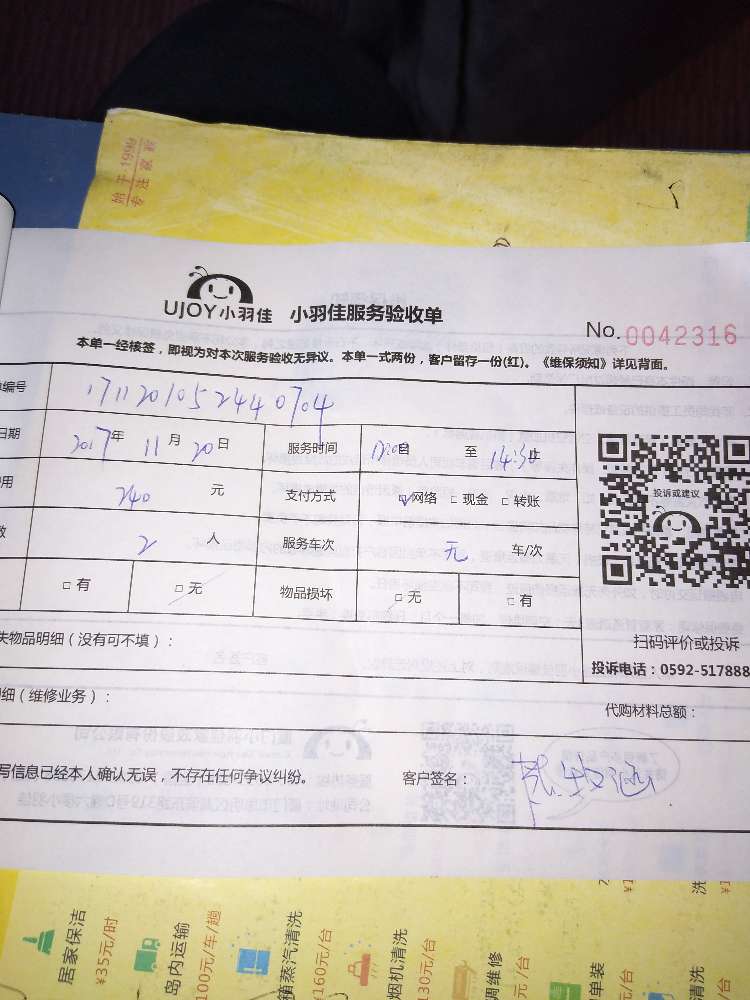 始于1999
专注家政
UJOY小羽佳 小羽佳服务验收单
No. 0042316
本单一经核签，即视为对本次服务验收无异议。本单一式两份，客户留存一份(红)。《维保须知》详见背面。
编号 1711201052440704
日期 2017年 11月 20日 服务时间 至 14:30
用 240 元 支付方式 ☑网络 □现金 □转账
数 2 人 服务车次 元 车/次
□有 □无 物品损坏 □无 □有
投诉或建议
扫码评价或投诉
投诉电话：0592-517888
失物品明细（没有可不填）：
细（维修业务）： 代购材料总额：
写信息已经本人确认无误，不存在任何争议纠纷。 客户签名：
居家保洁
¥35元/时
岛内运输
100元/车/趟
箱蒸汽清洗
¥160元/台
烟机清洗
130元/台
调维修
元/台
单装
/台
洗